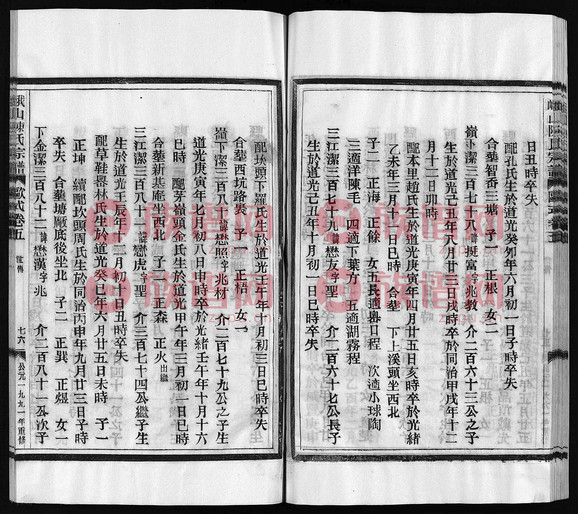 日丑時卒失
配孔氏生於道光癸夘年六月初一日子時卒失
合墓智香三塘 子一 正根 女二
嶺下潔三百七十八諱擬富字兆教 介二百六十三公之子
生於道光己丑年八月廿三日戌時卒於同治甲戌年十二
月十二日卯時
配本里趙氏生於道光庚寅年四月廿五日亥時卒於光緒
乙未年三月 日 時 合墓 下上溪頭坐西北
子二 正海 正餘 女五長適 口程 次適小球陶
三適洋陳毛 四適下葉方 五適湖霧程
三江潔三百七十九諱懋友字聖 介二百六十七公長子
生於道光己丑年十月初一日巳時卒失
配坎頭下羅氏生於道光 午年十月初三日巳時卒失
合墓西坑路裴 子一 正梧 女一
嶺下潔三百八十諱懋照字兆材 介二百七十九公之子生
道光庚寅年七月初八日申時卒於光緒壬午年十月十六
巳時 配茅嶺頭金氏生於道光甲午年三月初一日巳時
合墓新基庵坐西北 子二 正森 正火出繼
三江潔三百八十一諱懋虎字聖 介三百七十四公繼子生
生於道光壬辰年十二月初十日丑時卒失
配草鞋畧林氏生於道光癸巳年六月廿五日未時 子一
正坤 續配坎頭周氏生於同治丙申年九月廿三日子時
卒失 合墓塘廠底後坐北 子二 正巽 正煜 女一
下金潔三百八十二諱懋漢字兆 介二百八十一公次子
峨山陳氏宗譜
卷五
世傳
七六
公元一九九一年重修
族譜網